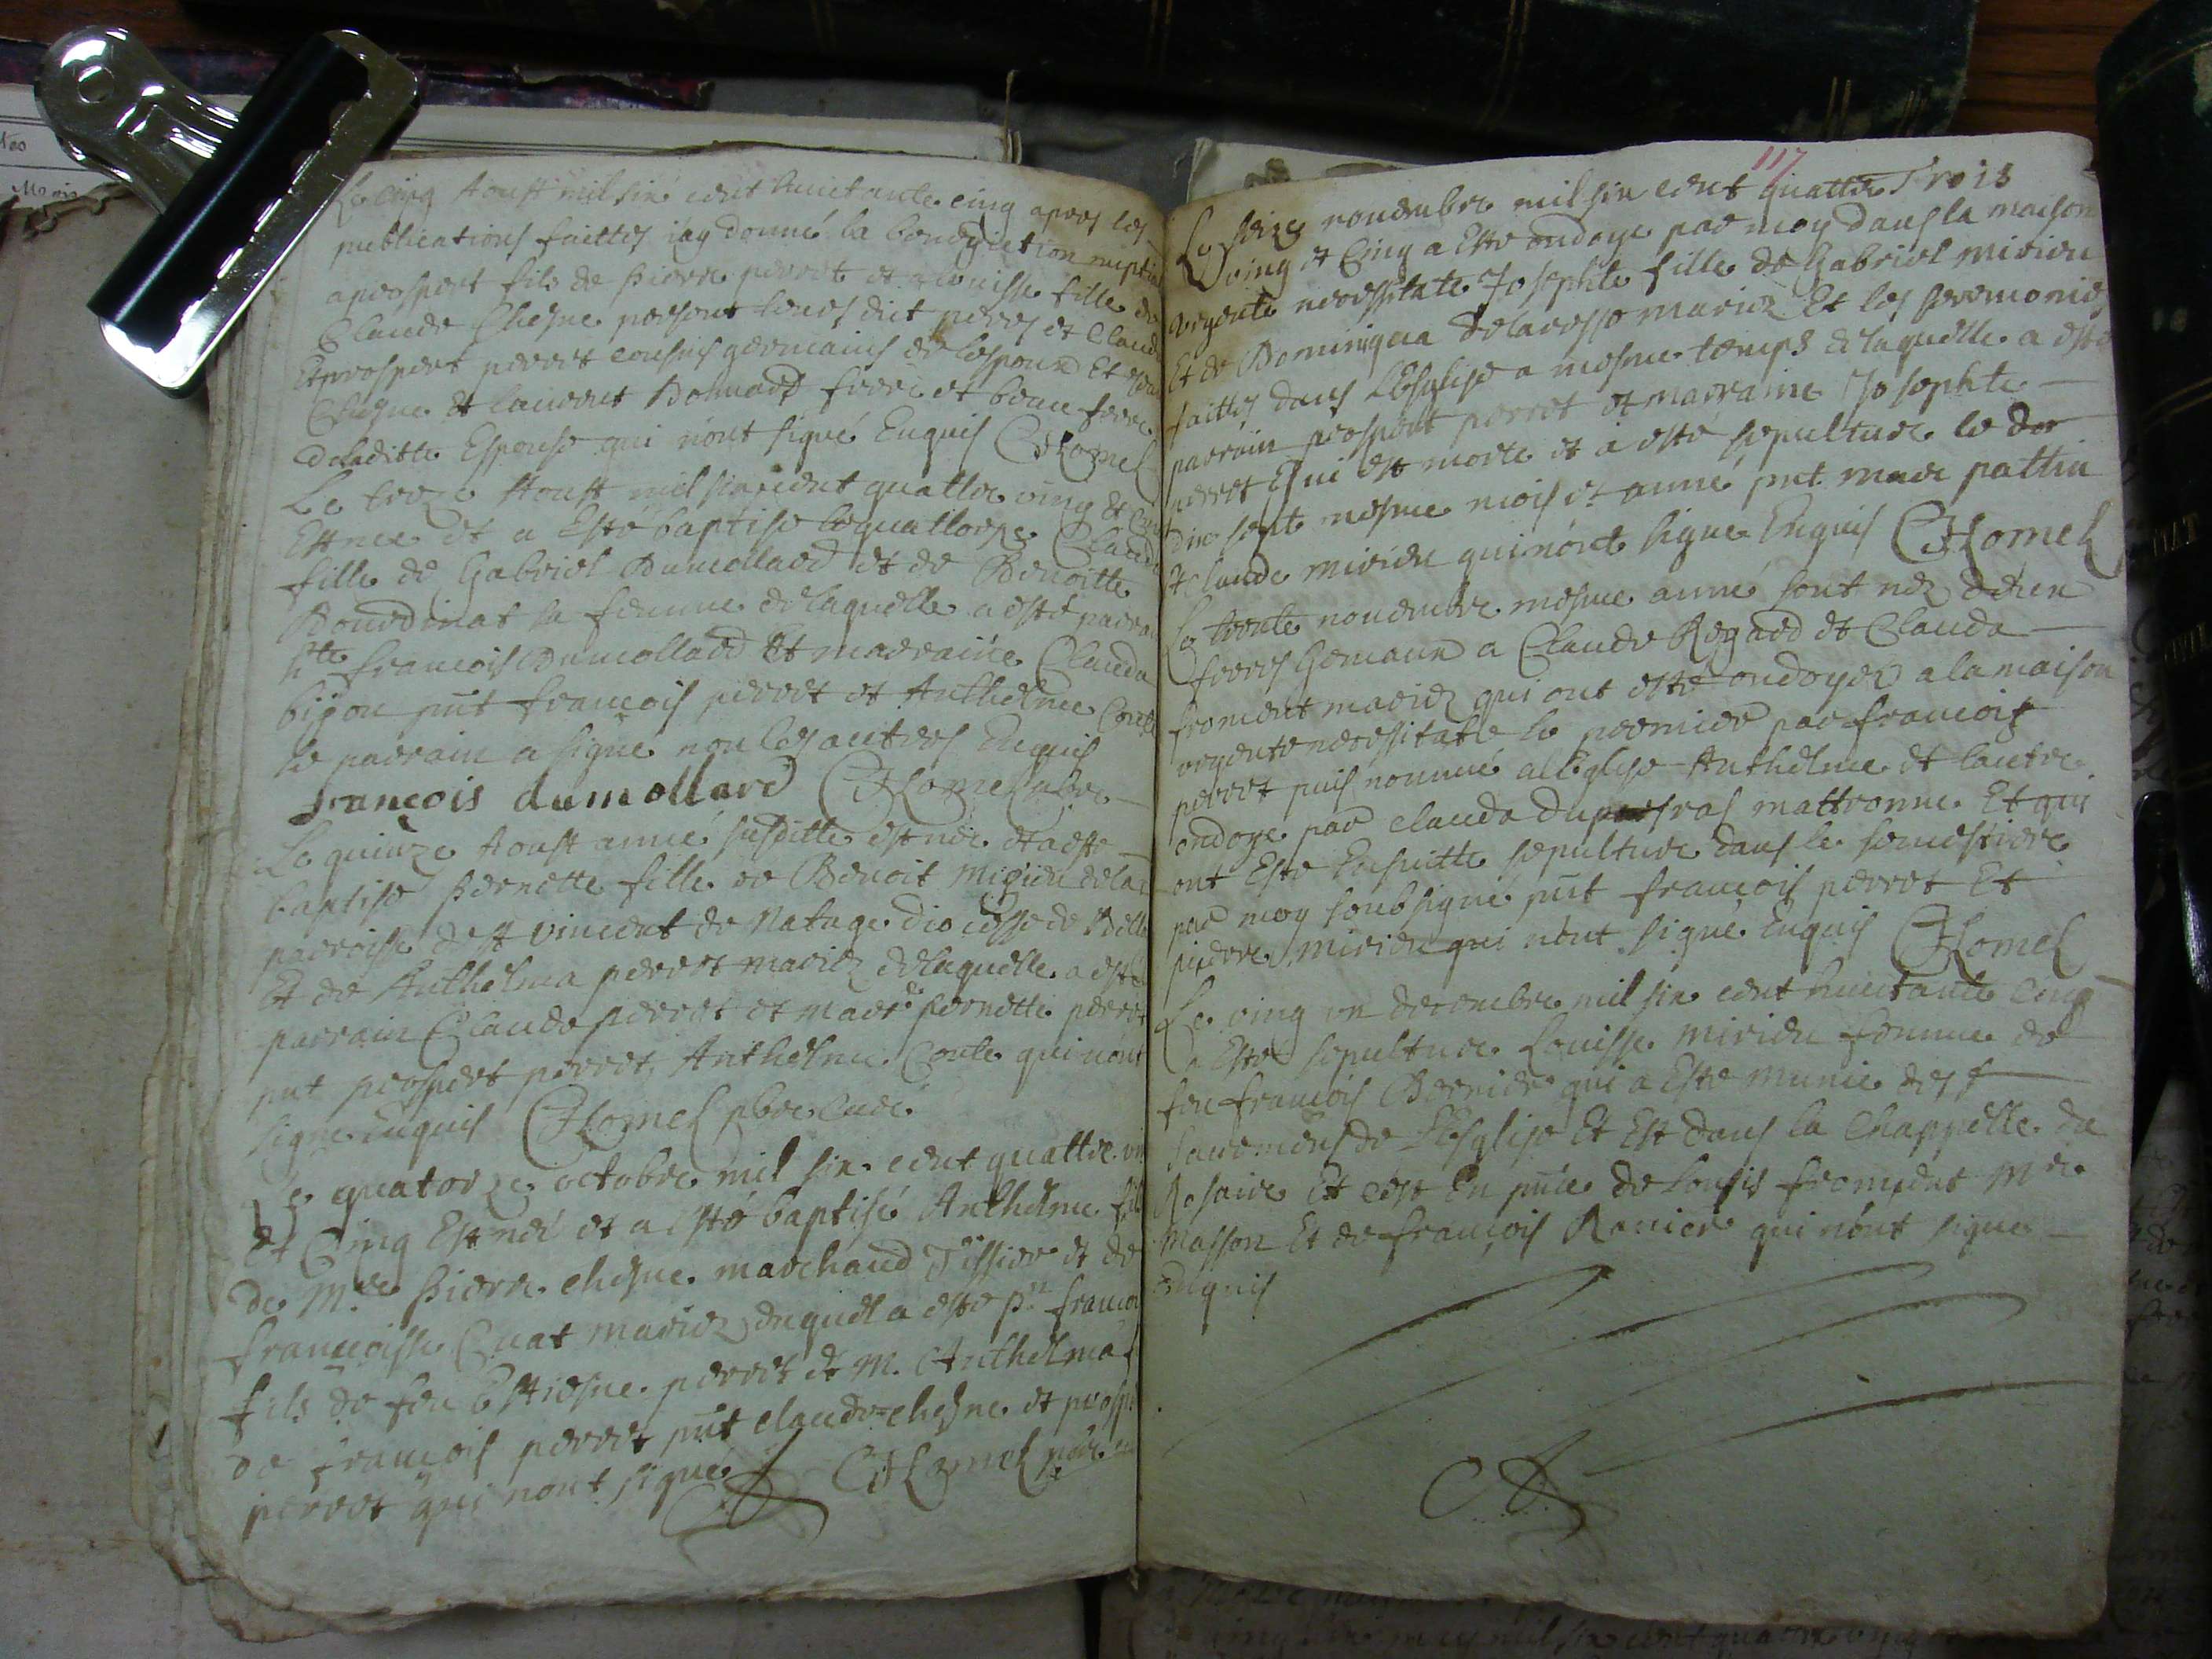 Le cinq Aoust mil six cent huictante cinq apres les
publications faittes i'ay donné la benediction nuptia
a prospert fils de pierre perret et a louisse fille de
Claude Chesne presents leurs dict peres et Claude
Et prospert perret cousins germains de l'espoux Et
Chesne et laurent Bonnard frere et beau frere
de laditte Espouse qui n'ont signé Enquis CHomel
Le treze Aoust mil six cent quattre ving et cinq
Est nee et a Esté baptise le quattorze Clauda
fille de Gabriel Dumollard et de Benoitte
Bourdinat sa femme de laquelle a esté parrain
hte francois Dumollard Et marraine Clauda
bigon pnt françois perret et Anthelme Conte
le parrain a signé non les autres Enquis
françois dumollard CHomel
Le quinze Aoust anneé susditte est neé et a este
baptise pernette fille de Benoit Migieu de la
parroisse de st vincent de Natage diocesse de Belle
Et de Anthelma perret mariez de laquelle a esté
parrain Claude perret et marr.e pernette perret
pnt prospert perret, Anthelme Conte qui n'ont
signe enquis CHomel pbre Curé
Le quatorze octobre mil six cent quattre vin
et Cinq Est neé et a esté baptisé Anthelme fils
de M.re pierre chesne marchand Tissier et de
francoisse Cuat mariez duquel a este p.n francoi
fils de feu Estiesne perret et M. Anthelma f
de françois perret pnt claude chesne et prospe
perret qui n'ont signé CHomel
117
Le seize novembre mil six cent quattre Trois
ving et Cinq a Este ondoye par moy dans la maison
urgente necessitate Josephte fille de Gabriel mirieu
Et de Dominiqua mariez Et les seremonies
faittes dans L'Esglise a mesme temps de laquelle a esté
parrain prospert perret et marraine Josephte
perret Qui est morte et a esté sepulture le
dix sept mesme mois et anné pnt
Claude mirieu qui n'ont signe Enquis CHomel
Le trente novembre mesme anné sont nez deux
freres Gemaux a Claude Regard et Clauda
froment mariez qui ont este ondoyez a la maison
urgente necessitate le premier par francois
perret puis nommé a l'Eglise Anthelme et l'autre
ondoye par clauda mattronne Et qui
ont Este Ensuitte sepulture dans le semestiere
par moy soubsigné pnt françois perret Et
pierre mirieu qui n'ont signé Enquis CHomel
Le ving un decembre mil six cent huictante Cinq
a Esté sepulture Louisse mirieu femme de
feu francois Berrier qui a Este munie des
sacremens de L'Esglise Et Est dans la Chappelle du
Rosaire Et c'est En pnce de Louis froment M.re
Masson Et de françois Ravier qui n'ont signe
enquis